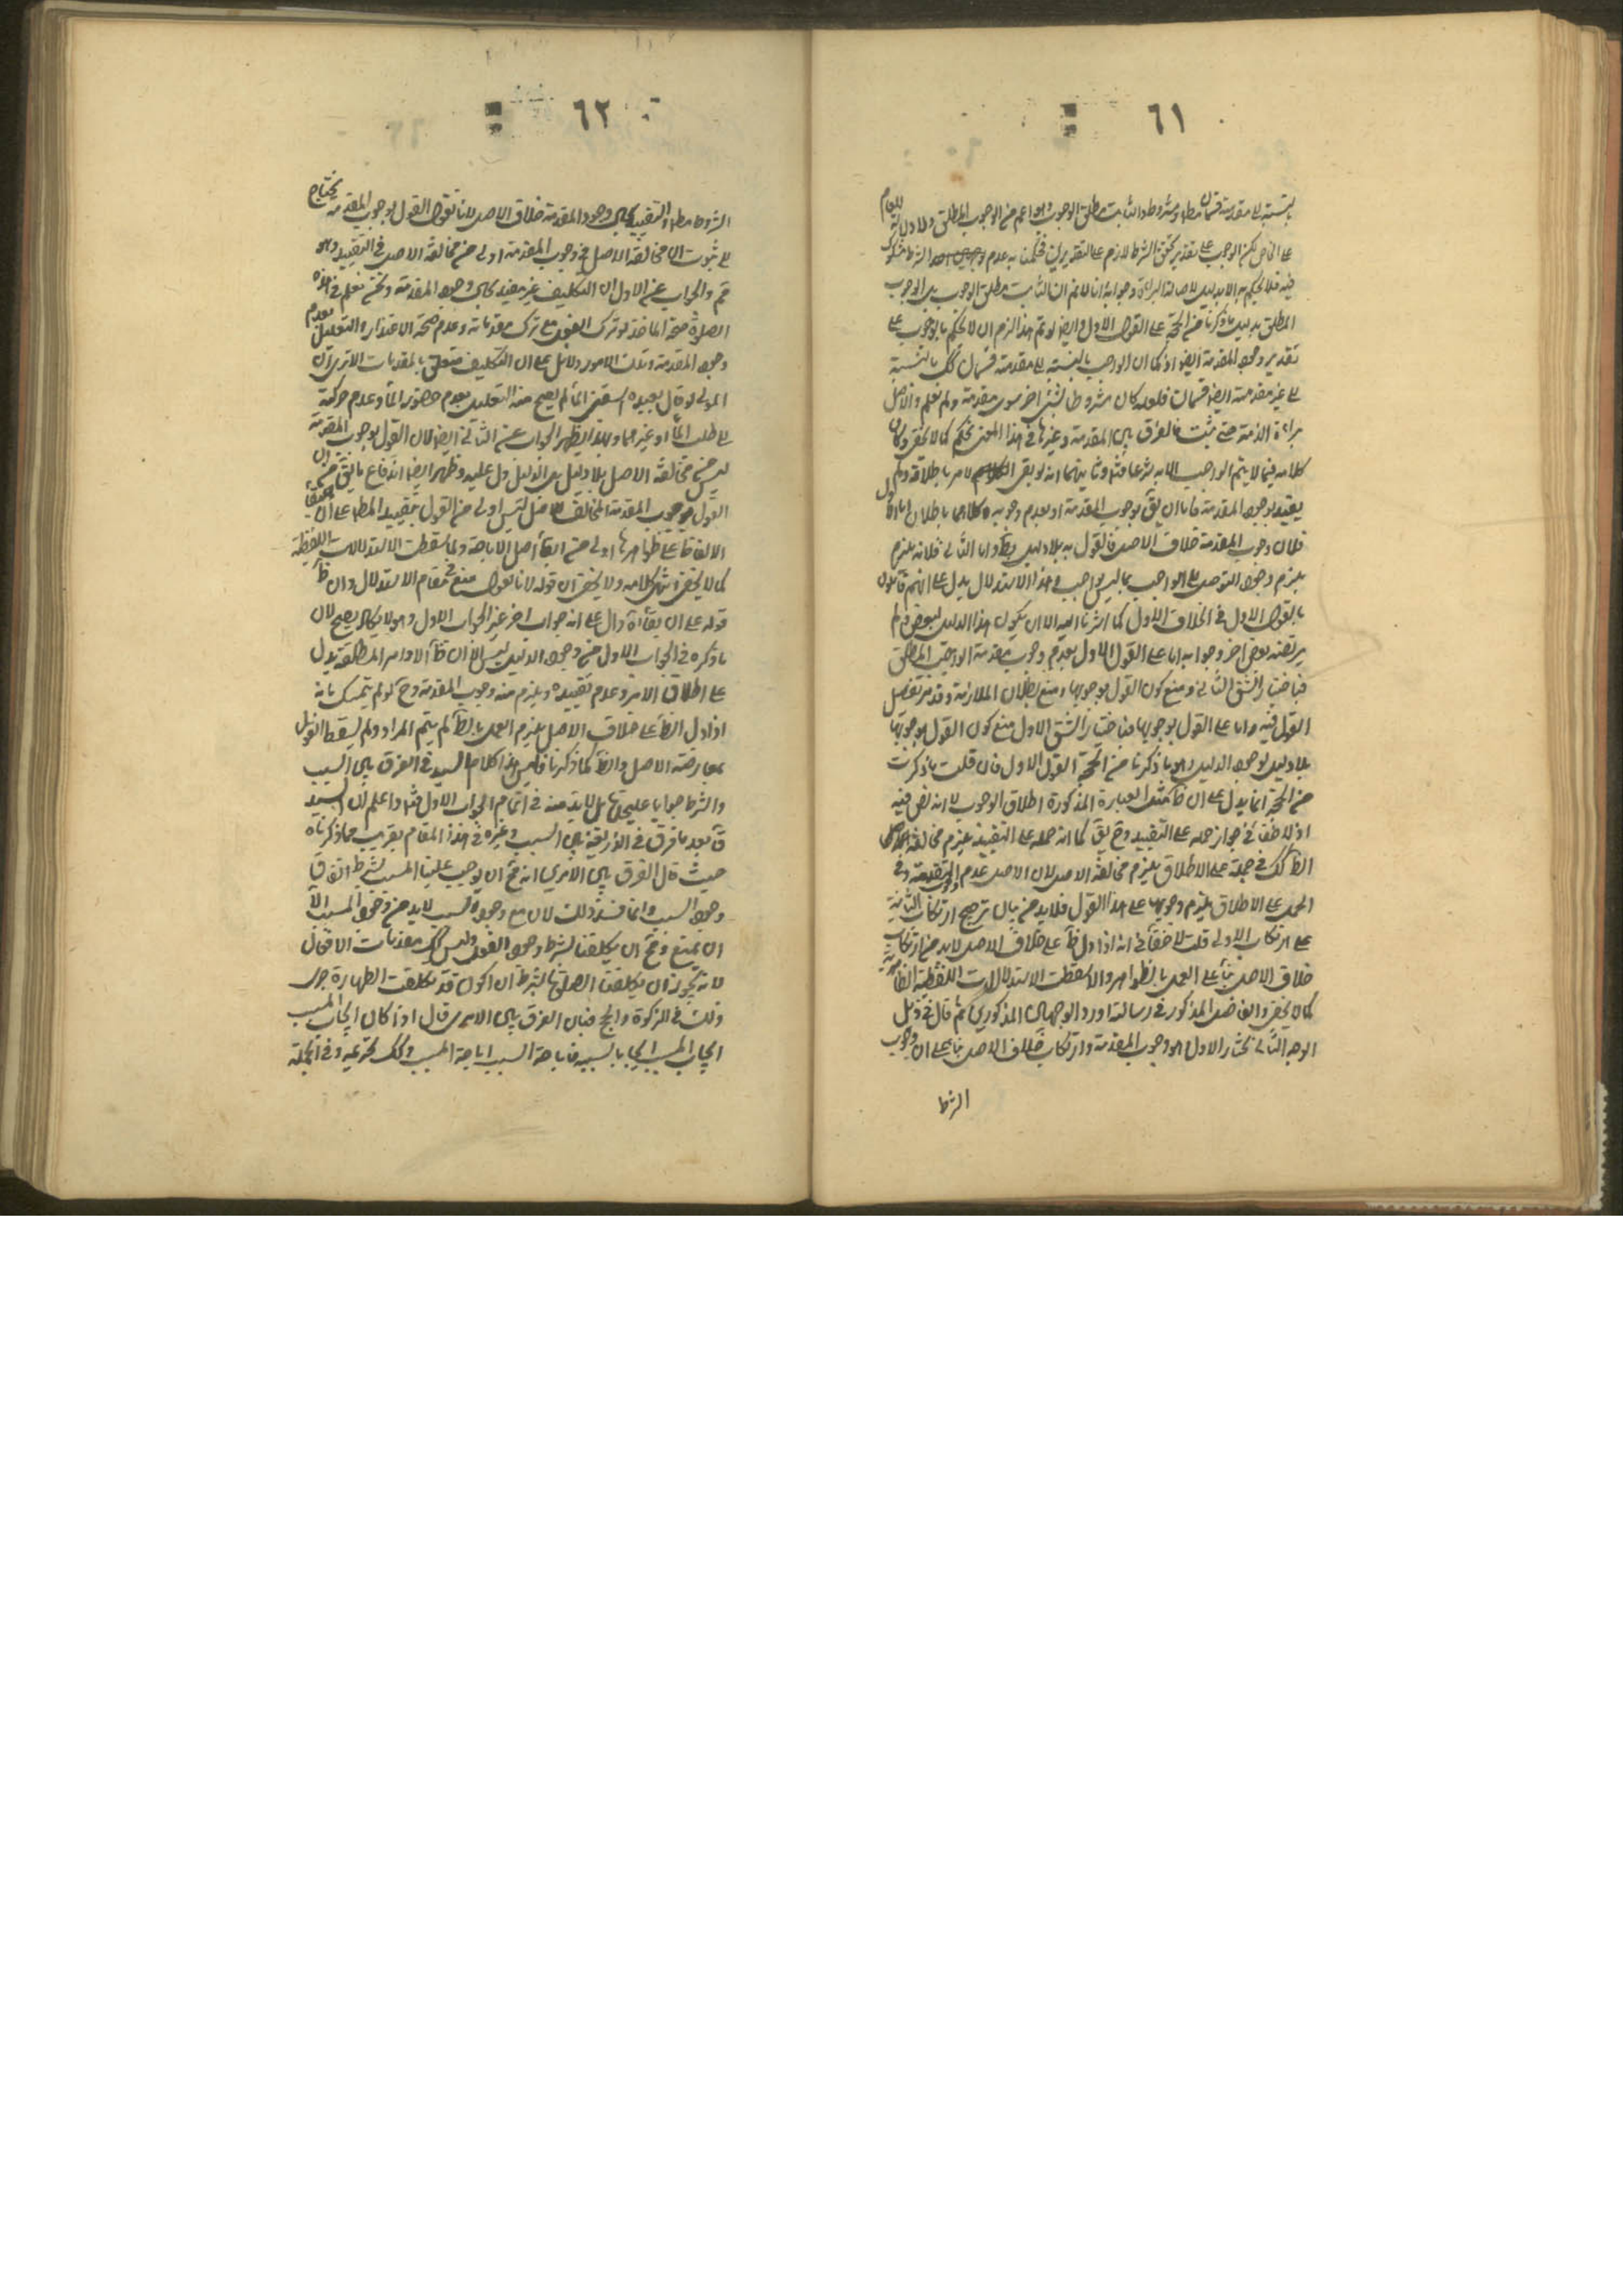 ٦١
بالنسبة الى مقدمته قسمان مطلق ومشروط والثابت مطلق الوجوب وهو اعم من الوجوب المطلق ولا دلالة للعام
على الخاص لكن الوجوب على تقدير تحقق الشرط لازم على التقديرين فحكمنا به وعدم الشرط مشكوك
فيه فلا نحكم به الا بدليل لاصالة البراءة وجوابه انا لا نم ان الثابت مطلق الوجوب بل الوجوب
المطلق بدليل ما ذكرنا من الحجة على القول الاول وايضا لو تم هذا لزم ان لا نحكم بالوجوب على
تقدير وجود المقدمة ايضا اذ كما ان الواجب بالنسبة الى مقدمته قسمان كك بالنسبة
الى غير مقدمته ايضا قسمان فلعله كان مشروطا بشيء اخر سوى مقدمته ولم نعلم والاصل
براءة الذمة حتى يثبت فالفرق بين المقدمة وغيرها في هذا المعنى تحكم كما لا يخفى وكان
كلامه فيما لا يتم الواجب الا به شرعا فتم وثانيهما انه لو بقى الامر باطلاقه ولم
يقيد بوجود المقدمة فاما ان يق بوجوب المقدمة او بعدم وجوبه وكلاهما باطلان اما الاول
فلان وجوب المقدمة خلاف الاصل فالقول به بلا دليل بط واما الثاني فلانه يلزم
يلزم وجوب التوصل الى الواجب بما ليس بواجب في هذا الاستدلال يدل على انهم قائلون
بالقول الاول في الخلاف الاول كما اشرنا اليه الا ان يكون هذا الدليل لبعض ولم
يرتضه بعض اخر وجوابه اما على القول الاول بعدم وجوب مقدمة الواجب المطلق
فباختيار الشق الثاني ومنع كون القول بوجوبها ومنع بطلان الملازمة وقد مر تفصيل
القول فيه واما على القول بوجوبها فباختيار الشق الاول ومنع كون القول بوجوبها
بلا دليل لوجود الدليل وهو ما ذكرنا من الحجة القول الاول فان قلت ما ذكرت
من الحجة انما يدل على ان ظ مثل العبارة المذكورة اطلاق الوجوب لا انه نص فيه
اذ لا خفاء في جواز حمله على التقييد وح يق كما ان حمله على التقييد يلزم مخالفة
الظ كك في حمله على الاطلاق يلزم مخالفة الاصل لان الاصل عدم وجوب المقدمة وفي
الحمل على الاطلاق يلزم وجوبها على هذا القول فلا بد من بيان ترجيح ارتكاب الثانية
على ارتكاب الاولى قلت لا خفاء في انه اذا دل ظ على خلاف الاصل لا بد من ارتكاب
خلاف الاصل بناء على العمل بالظواهر والا لسقطت الاستدلالات اللفظية الظاهرية
كما لا يخفى والفاضل المذكور في رسالته اورد الوجهين المذكورين ثم قال في ذيل
الوجه الثاني نختار الاول وهو وجوب المقدمة وارتكاب خلاف الاصل بناء على ان وجوب
الشرط
٦٢
الشرط مطلقا والتقييد بحال وجود المقدمة خلاف الاصل لانا نقول القول بوجوب المقدمة يحتاج
الى ثبوت ان مخالفة الاصل في وجوب المقدمة اولى من مخالفة الاصل في التقييد وهو
مم والجواب عن الاول ان التكليف غير مقيد بحال وجود المقدمة ونحن نعلم في هذه
الصلوة صحة المؤاخذة لو ترك الفعل مع ترك مقدماته وعدم صحة الاعتذار والتعليل بعدم
وجود المقدمة وتلك الامور دلائل على ان التكليف متعلق بالمقدمات الا ترى ان
المولى لو قال لعبده اسقني الماء لم يصح منه التعليل بعدم حضور الماء وعدم حركته
الى طلب الماء او غيرهما وبهذا يظهر الجواب عن الثاني ايضا لان القول بوجوب المقدمة
ليس من مخالفة الاصل بلا دليل بل الدليل دل عليه وظهر ايضا اندفاع ما يق من ان
القول بوجوب المقدمة المخالف للاصل ليس اولى من القول بتقييد المطلق على ان ابقاء
الالفاظ على ظواهرها اولى من ابقاء اصل الاباحة والا لسقطت الاستدلالات اللفظية
كما لا يخفى انتهى كلامه ولا يخفى ان قوله لانا نقول منع في مقام الاستدلال وان ظ
قوله على ان بقاء اه دال على انه جواب اخر غير الجواب الاول وهو لا يكاد يصح لان
ما ذكره في الجواب الاول من وجود الدليل ليس الا ان ظ الاوامر المطلقة يدل
على اطلاق الامر وعدم تقييده ويلزم منه وجوب المقدمة وح لو لم يتمسك بانه
اذا دل الظ على خلاف الاصل يلزم العمل بالظ لم يتم المراد ولم يسقط القول
بمعارضة الاصل والظ كما ذكرنا فليس هذا كلام السيد في الفرق بين السبب
والشرط جوابا عليحدة بل لا بد منه في اتمام الجواب الاول فتم واعلم ان السيد
قد بعد ما فرق في الذريعة بين السبب وغيره في هذا المقام بقريب مما ذكرناه
حيث قال الفرق بين الامرين انه مح ان يوجب علينا المسبب بشرط اتفاق
وجود السبب وانما فسد ذلك لان مع وجود السبب لا بد من وجود المسبب الا
ان يمنع ومح ان يكلفنا بشرط وجود الفعل وليس كك مقدمات الافعال
لانه يجوز ان يكلفنا الصلوة بشرط ان اكون قد تكلفت الطهارة جرى
ذلك في الزكوة والحج فبان الفرق بين الامرين قال اذا كان ايجاب المسبب
ايجاب المسبب ايجابا لسببه فاباحة السبب اباحة المسبب وكك تحريمه وفي الجملة